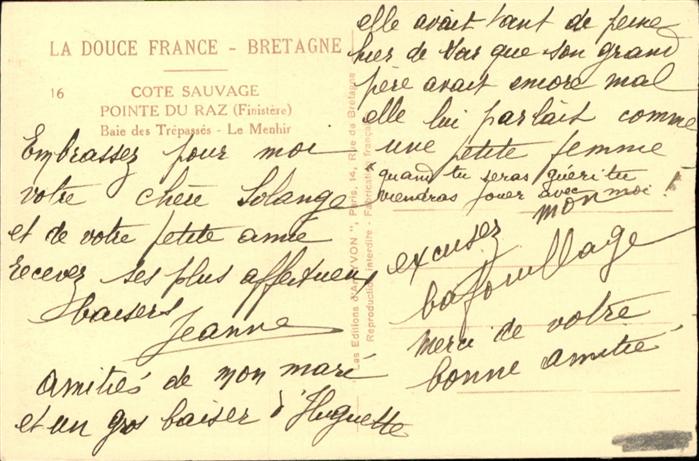 LA DOUCE FRANCE - BRETAGNE
16
COTE SAUVAGE
POINTE DU RAZ (Finistère)
Baie des Trépassés - Le Menhir
Embrassez pour moi
votre chère Solange
et de votre petite amie
recevez ses plus affectueux
baisers
Jeanne
amitiés de mon mari
et un gros baiser d'Huguette
Les Editions d'Art "YVON", Paris, 14, Rue de Bretagne
Reproduction interdite - Fabrication française
elle avait tant de peine
hier de voir que son grand
père avait encore mal
elle lui parlait comme
une petite femme
quand tu seras guéri tu
viendras jouer avec moi !
excusez mon
bafouillage
Merci de votre
bonne amitié